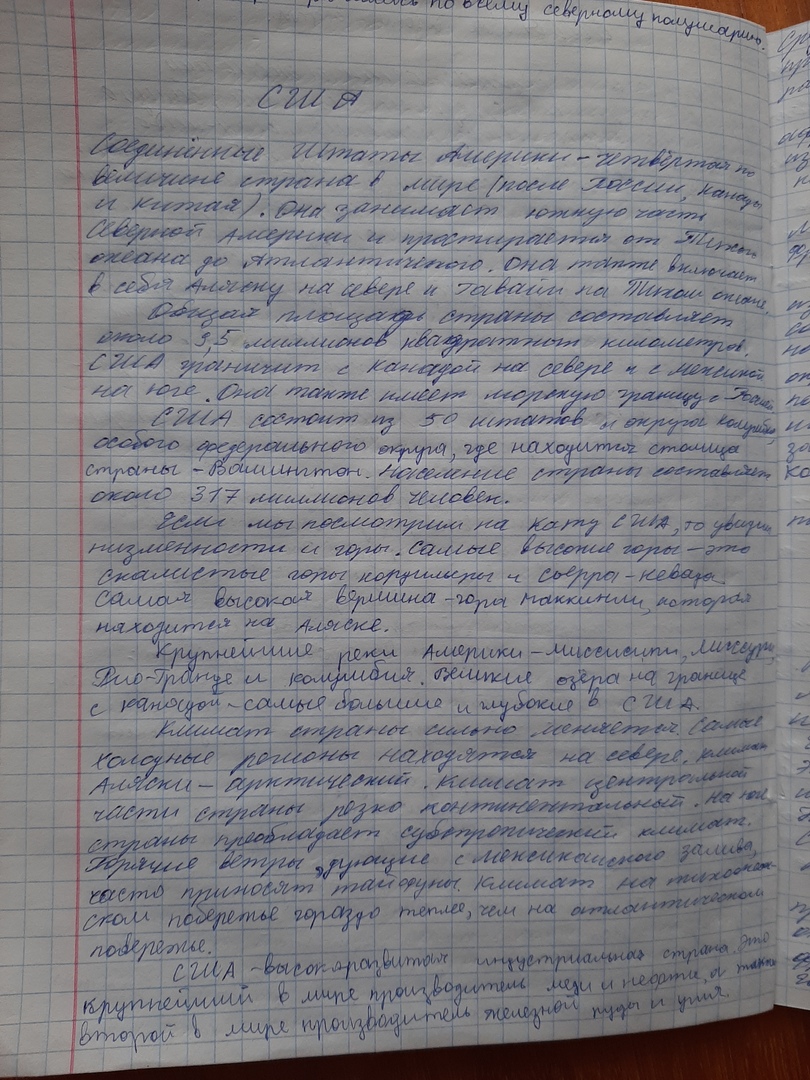 по всему северному полушарию.
США
Соединённые Штаты Америки - четвёртая по
величине страна в мире (после России, Канады
и Китая). Она занимает южную часть
Северной Америки и простирается от Тихого
океана до Атлантического. Она также включает
в себя Аляску на севере и Гавайи на Тихом океане.
Общая площадь страны составляет
около 9,5 миллионов квадратных километров.
США граничит с Канадой на севере и с Мексикой
на юге. Она также имеет морскую границу с Россией
США состоит из 50 штатов и округа Колумбия,
особого федерального округа, где находится столица
страны - Вашингтон. Население страны составляет
около 317 миллионов человек.
Если мы посмотрим на кату США, то увидим
низменности и горы. Самые высокие горы - это
скалистые горы кордильеры и сьерра-невада.
Самая высокая вершина - гора Маккинли, которая
находится на Аляске.
Крупнейшие реки Америки - миссисипи, миссури,
Рио-Гранде и колумбия. Великие озёра на границе
с канадой - самые большие и глубокие в США.
Климат страны сильно меняется. Самые
холодные регионы находятся на севере. климат
Аляски - арктический. Климат центральной
части страны резко континентальный. На юге
страны преобладает субтропический климат.
Горячие ветры, дующие с мексиканского залива,
часто приносят тайфуны. Климат на тихоокеан-
ском поберетье гораздо теплее, чем на атлантическом
побережье.
США - высокоразвитая индустриальная страна. Это
крупнейший в мире производитель меди и нефти, а также
второй в мире производитель железной руды и угля.